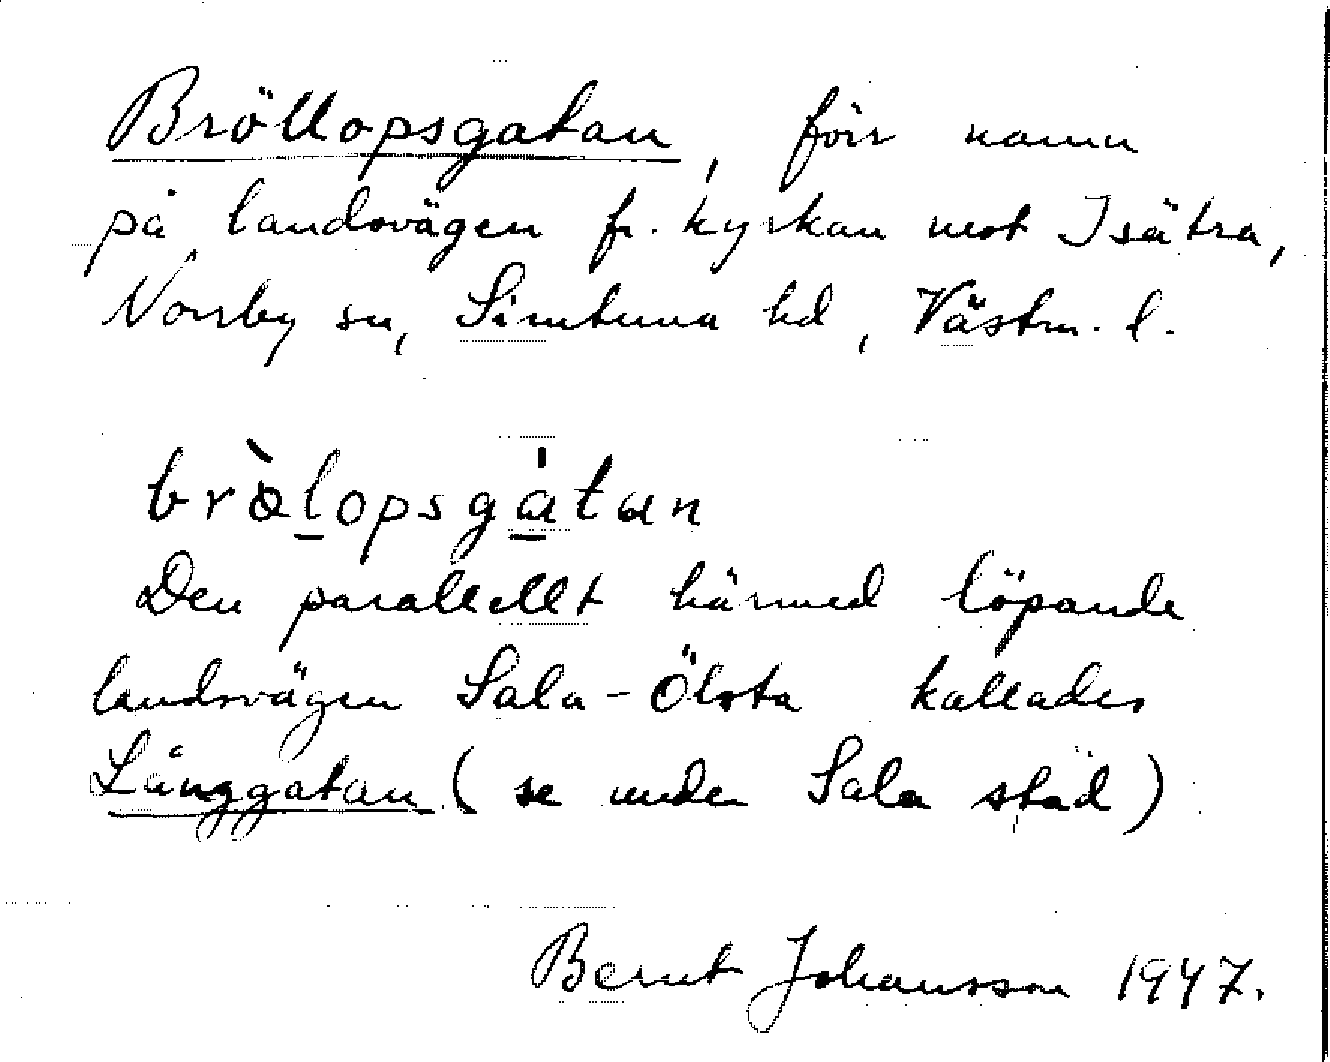 Bröllopsgatan, förr namn
på landsvägen fr. kyrkan mot Isätra,
Norrby sn, Simtuna hd, Västm. l.
brö̀lopsgátan
Den parallellt härmed löpande
landsvägen Sala-Ölsta kallades
Långgatan (se under Sala stad)
Bernt Johansson 1947.